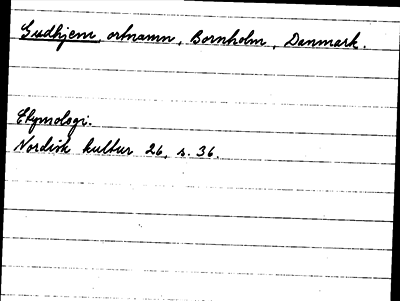 Gudhjem, ortnamn, Bornholm, Danmark.
Etymologi.
Nordisk kultur 26, s. 36.